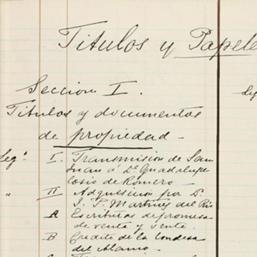 Titulos y Papele
Seccion I.
Titulos y documentos
de propiedad.
Leg.º I. Transmision de San
Juan á Dª Guadalupe
de Romero.
" II Adquisicion por D.
J. P. Martinez del Rio
A Escrituras de promesa
de venta y venta.
B Credito de la Condesa
del Alamo.